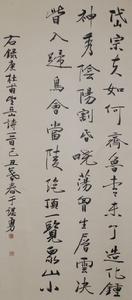 岱宗夫如何齊魯青未了造化鍾
神秀陰陽割昏曉蕩胸生層雲決
眥入歸鳥會當凌絕頂一覽眾山小
右錄唐杜甫望岳詩一首己丑歲春于勇